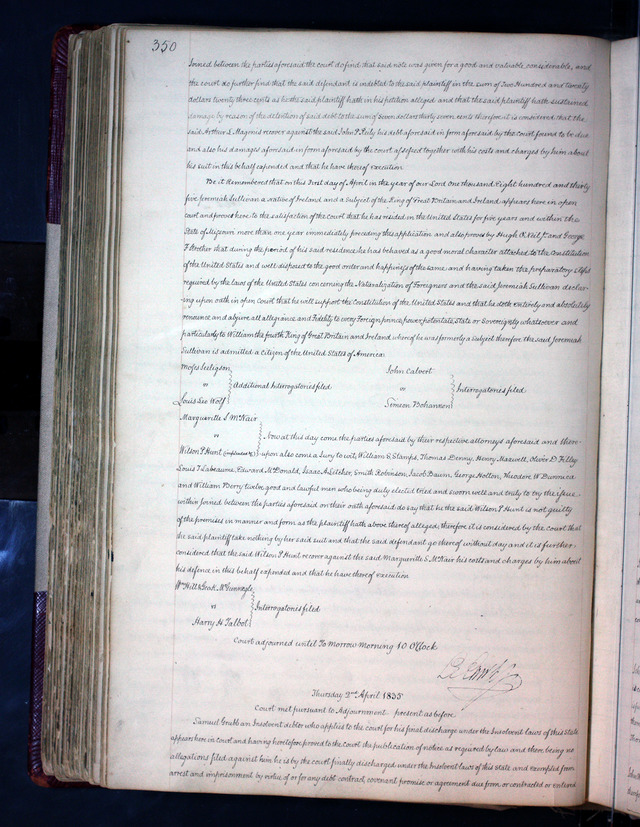 350
Joined between the parties aforesaid the court do find that said note was given for a good and valuable, considerable, and
the court do further find that the said defendant is indebted to the said plaintiff in the sum of Two Hundred and twenty
dollars twenty three cents as he the said plaintiff hath in his petition alleged and that the said plaintiff hath sustained
damage by reason of the detention of said debt to the sum of Seven dollars thirty seven cents therefore it is considered that the
said Arthur L. Magenis recover against the said John P. his debt aforesaid in form aforesaid by the court found to be due
and also his damages aforesaid in form aforesaid by the court assessed together with his costs and charges by him about
his suit in this behalf expended and that he have thereof execution
Be it Remembered that on this First day of April in the year of our Lord one thousand Eight hundred and thirty
five Jeremiah Sullivan a native of Ireland and a Subject of the King of Great Britain and Ireland appears here in open
court and proves here to the satisfaction of the court that he has resided in the United States for five years and within the
State of Missouri more than one year immediately preceding this application and also proves by Hugh O. Neil Jr. and George
F. Strother that during the period of his said residence he has behaved as a good moral character attached to the Constitution
of the United States and well disposed to the good order and happiness of the same and having taken the preparatory steps
required by the laws of the United States concerning the Naturalization of Foreigners and the said Jeremiah Sullivan declar-
ing upon oath in open Court that he will support the Constitution of the United States and that he doth entirely and absolutely
renounce and abjure all allegiance and Fidelity to every Foreign prince, power, potentate, State or Sovereignty whatsoever and
particularly to William the fourth King of Great Britain and Ireland whereof he was formerly a subject therefore the said Jeremiah
Sullivan is admitted a citizen of the United States of America
Moses Seeligson
vs
Louis Leo Wolf
Additional Interrogatories filed
John Calvert
vs
Simeon Bohannon
Interrogatories filed
Marguerite S McNair
vs
Wilson P. Hunt
Now at this day come the parties aforesaid by their respective attorneys aforesaid and there-
upon also come a Jury to wit, William S. Stamps, Thomas Denny, Henry Maxwell, Oliver D. Filley
Louis T Labeaume, Edward McDonald, Isaac A. Letcher, Smith Robinson, Jacob Baum, George Hollon, Theodore W.
and William Berry twelve good and lawful men who being duly elected tried and sworn well and truly to try the issue
within Joined between the parties aforesaid on their oath aforesaid do say that he the said Wilson P. Hunt is not guilty
of the premises in manner and form as the plaintiff hath above thereof alleged; therefore it is considered by the court that
the said plaintiff take nothing by her said suit and that the said defendant go thereof without day and it is further
considered that the said Wilson P. Hunt recover against the said Marguerite S. McNair his costs and charges by him about
his defence in this behalf expended and that he have thereof execution
Wm Hill & Geo. K. McGunnegle
vs
Harry H Talbot
Interrogatories filed
Court adjourned until To Morrow Morning 10 O'Clock
Thursday 2nd April 1835
Court met pursuant to Adjournment present as before
Samuel Grubb an Insolvent debtor who applies to the court for his final discharge under the Insolvent laws of this state
appears here in court and having heretofore proved to the court the publication of notice as required by law and there being no
allegations filed against him he is by the court finally discharged under the Insolvent laws of this state and exempted from
arrest and imprisonment by virtue of or for any debt contract, covenant promise or agreement due from or contracted or entered